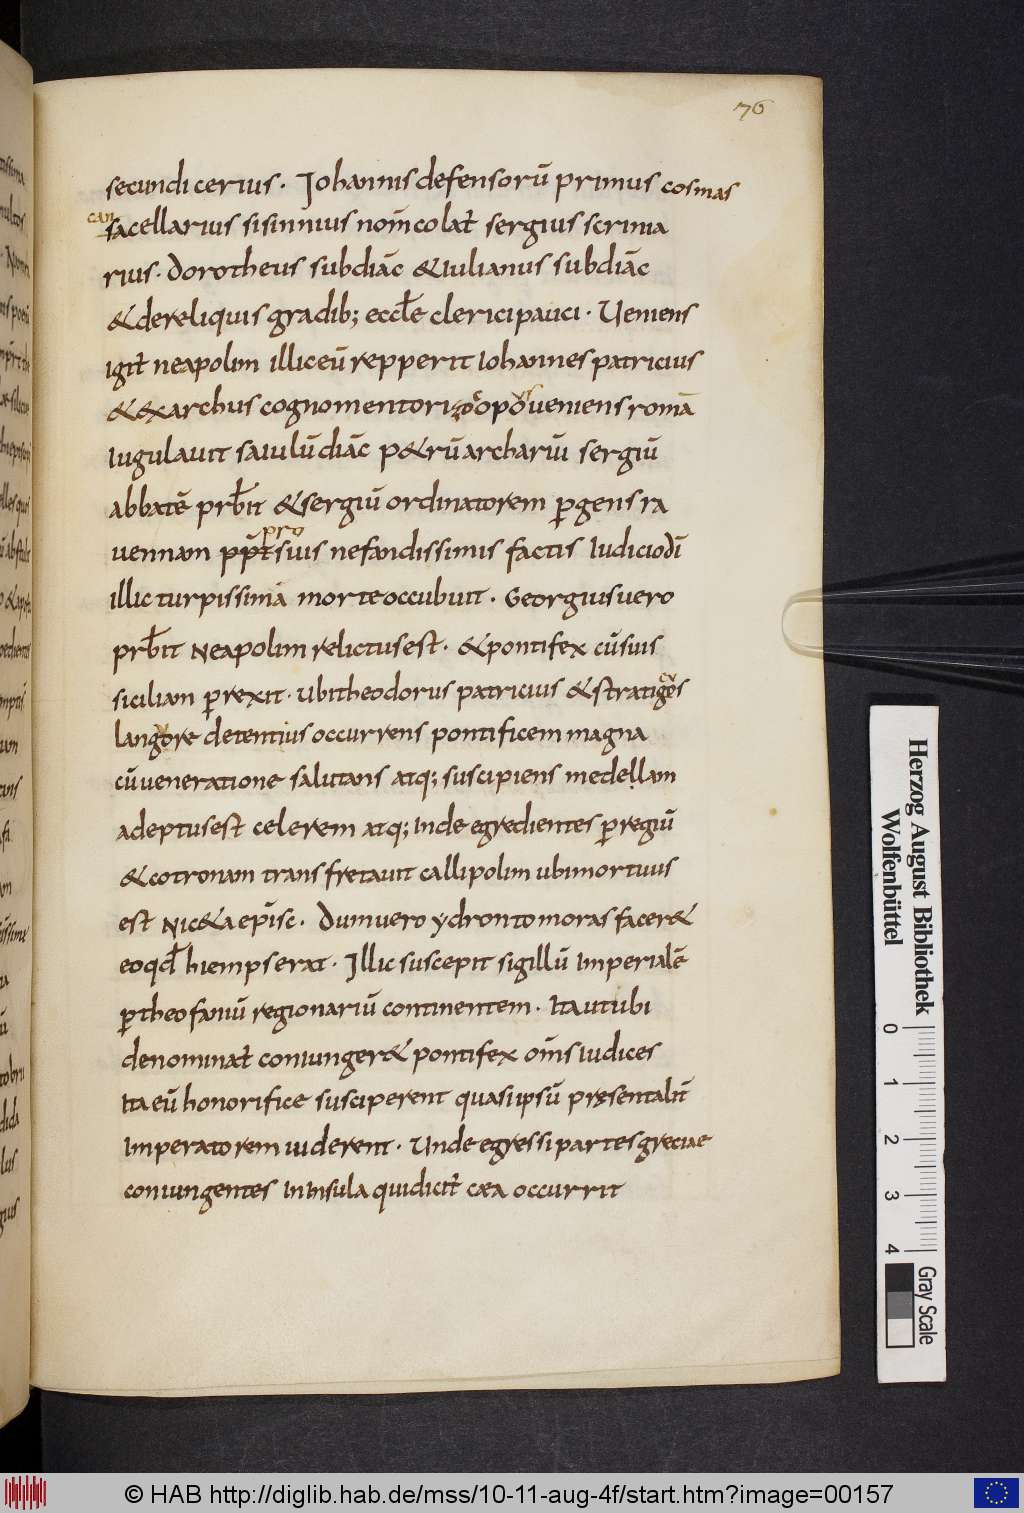 76
secundicerius. Iohannis defensorū primus cosmas
can
sacellarius sisinnius nom̄colat̄ sergius scrinia
rius. dorotheus subdiāc & iulianus subdiāc
& dereliquis gradib; eccl̄e clerici pauci. Veniens
igit̄ neapolim illic eū repperit Iohannes patricius
& exarchus cognomento veniens romā
Iugulavit saiulū diāc p&rū archariū sergiū
abbatē prb̄it & sergiū ordinatorem ꝑgens ra
pro
vennam pp̄t suis nefandissimis factis Iudicio dī
illic turpissimā morte occubuit. Georgius vero
prb̄it Neapolim relictus est. & pontifex cū suis
siciliam ꝑrexit. ubi theodorus patricius & stratiges
langore detentus occurrens pontificem magna
cū veneratione salutans atq; suscipiens medellam
adeptus est celerem atq; Inde egredientes ꝑ regiū
& cotronam transfretavit callipolim ubi mortuus
est Nic&a ep̄isc. Dum vero ydronto moras facer&
eo qd̄ hiemps erat. Illic suscepit sigillū Imperialē
ꝑ theofaniū regionariū continentem. Ita ut ubi
denominat̄ coniunger& pontifex om̄s iudices
Ita eū honorifice susciperent quasi ipsū presentalit̄
Imperatorem viderent. Unde egressi partes greciae
coniungentes In Insula qui dicit̄ cæa occurrit
Herzog August Bibliothek
Wolfenbüttel
0 1 2 3 4
Gray Scale
© HAB http://diglib.hab.de/mss/10-11-aug-4f/start.htm?image=00157